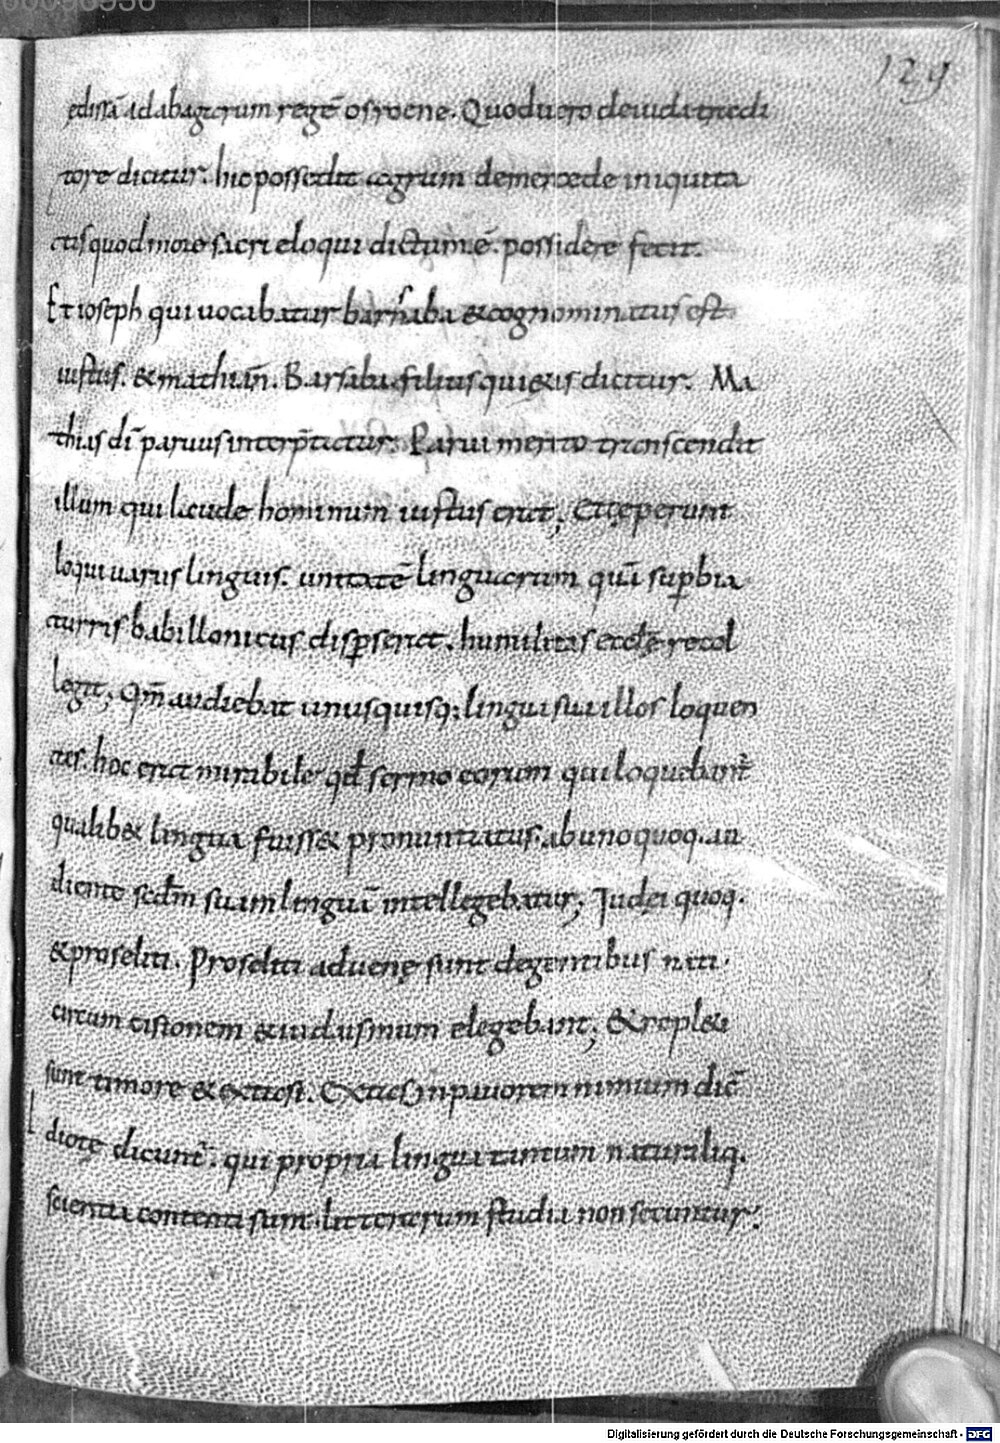 60096936
129
ędissā adabagarum regē osroene. Quoduero deiudatradi
tore dicitur. hic possedit agrum demercede iniquita
tis quod more sacri eloqui dictum ē. possidere fecit.
Et ioseph qui uocabatur barsaba &cognominatus est
iustus. & mathiam̄. Barsaba filius qui&is dicitur. Ma
thias dī paruus interp̄tatur. Parui merito transcendit
illum qui laude hominum iustus erat; Cęperunt
loqui uariis linguis. unitatē linguarum quā sup̄bia
turris babillonicus disp̄serat. humilitas eccłę recol
legit; Qm̄ audiebat unusquisq; lingua sua illos loquen
tes. hoc erat mirabile qd̄ sermo eorum qui loquebant̄
qualib& lingua fuiss& pronuntiatus. ab unoquoq. au
diente scdm̄ suam linguā intellegebatur; Iudęi quoq.
&proseliti. Proseliti aduenę sunt degentibus nati.
circum cisionem &iudaismum elegebant; &repleti
sunt timore & extasi. Extasin pauorem nimium dic̄
Idiotę dicunt̄. qui propria lingua tantum naturaliq.
scientia contenti sunt. litterarum studia non secuntur.
Digitalisierung gefördert durch die Deutsche Forschungsgemeinschaft - DFG